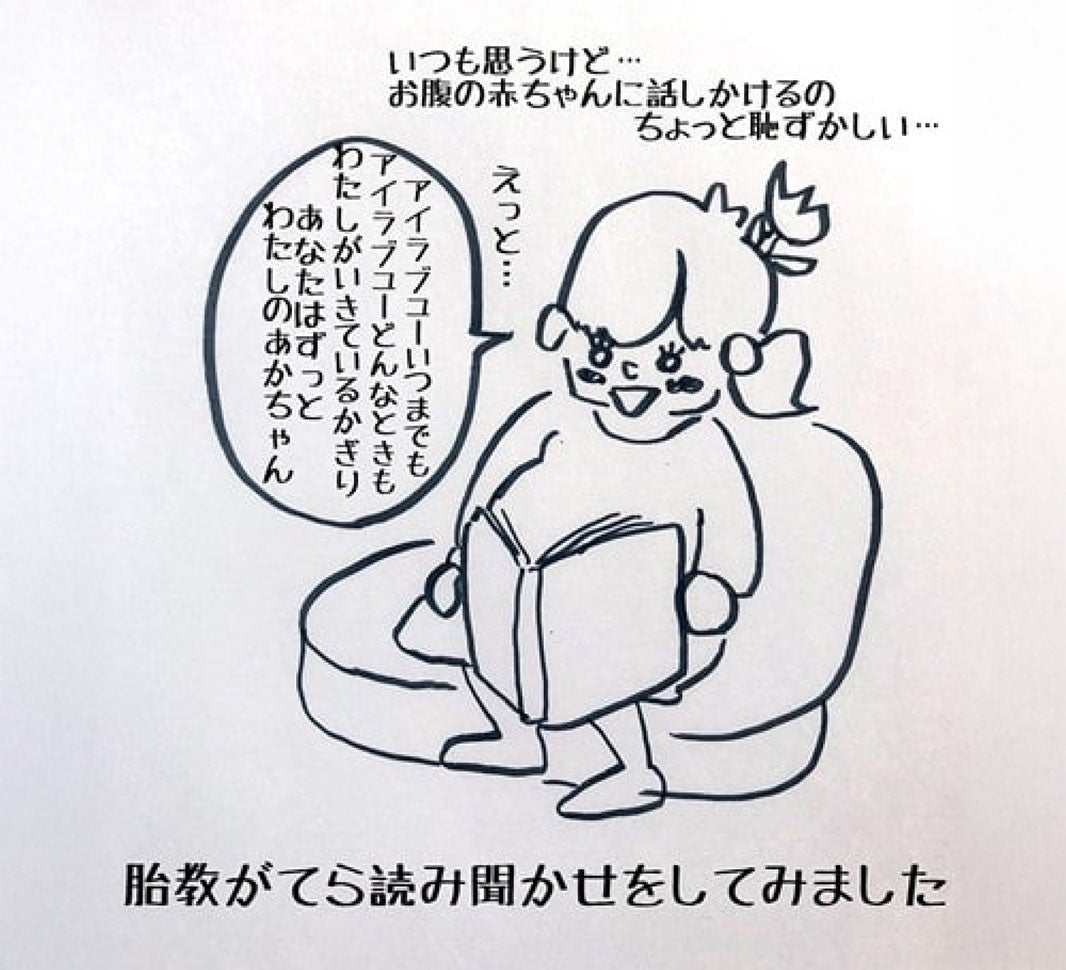 いつも思うけど…
お腹の赤ちゃんに話しかけるの
ちょっと恥ずかしい…
えっと…
アイラブユーいつまでも
アイラブユーどんなときも
わたしがいきているかぎり
あなたはずっと
わたしのあかちゃん
胎教がてら読み聞かせをしてみました